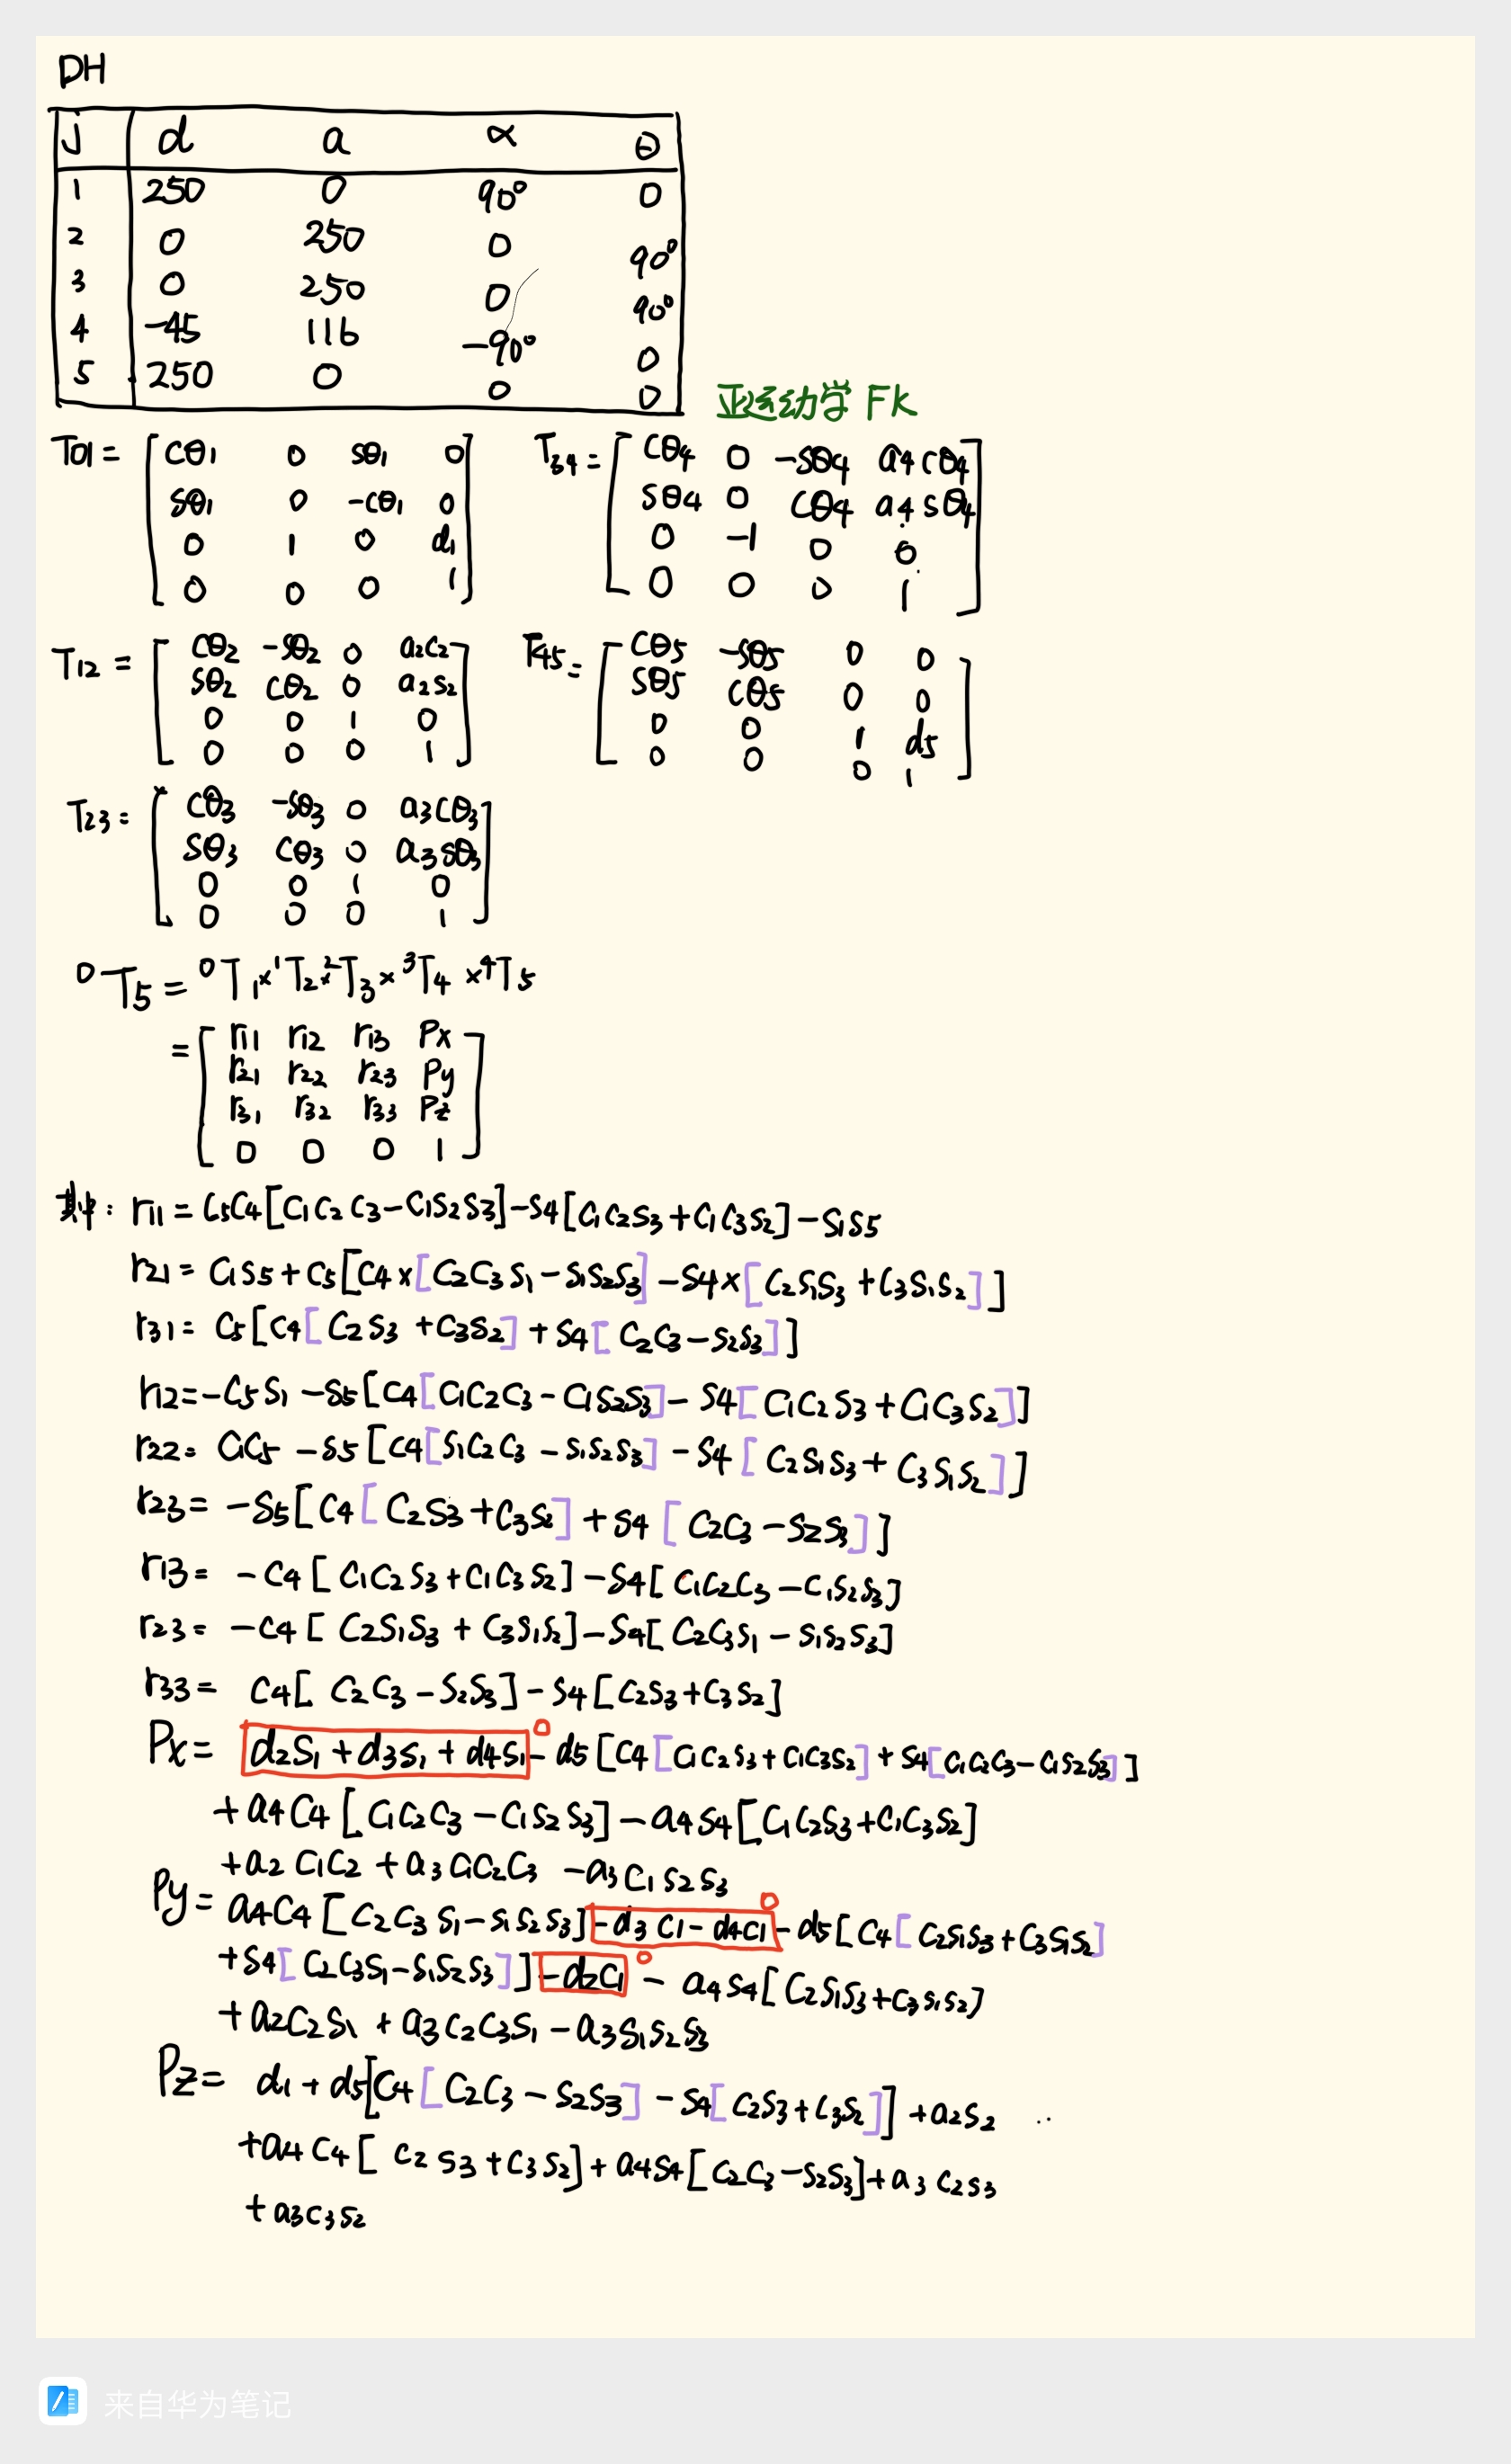 DH
j d a α θ
1 250 0 90° 0
2 0 250 0 90°
3 0 250 0 90°
4 -45 116 -90° 0
5 250 0 0 0
正运动学 FK
T01 = [ cθ1 0 sθ1 0
sθ1 0 -cθ1 0
0 1 0 d1
0 0 0 1 ]
T34 = [ cθ4 0 -sθ4 a4cθ4
sθ4 0 cθ4 a4sθ4
0 -1 0 0
0 0 0 1 ]
T12 = [ cθ2 -sθ2 0 a2c2
sθ2 cθ2 0 a2s2
0 0 1 0
0 0 0 1 ]
T45 = [ cθ5 -sθ5 0 0
sθ5 cθ5 0 0
0 0 1 d5
0 0 0 1 ]
T23 = [ cθ3 -sθ3 0 a3cθ3
sθ3 cθ3 0 a3sθ3
0 0 1 0
0 0 0 1 ]
⁰T5 = ⁰T1 × ¹T2 × ²T3 × ³T4 × ⁴T5
= [ r11 r12 r13 Px
r21 r22 r23 Py
r31 r32 r33 Pz
0 0 0 1 ]
其中: r11 = C5C4[C1C2C3-C1S2S3]-S4[C1C2S3+C1C3S2]-S1S5
r21 = C1S5+C5[C4×[C2C3S1-S1S2S3]-S4×[C2S1S3+C3S1S2]]
r31 = C5[C4[C2S3+C3S2]+S4[C2C3-S2S3]]
r12=-C5S1-S5[C4[C1C2C3-C1S2S3]-S4[C1C2S3+C1C3S2]]
r22= C1C5-S5[C4[S1C2C3-S1S2S3]-S4[C2S1S3+C3S1S2]]
r23= -S5[C4[C2S3+C3S2]+S4[C2C3-S2S3]]
r13= -C4[C1C2S3+C1C3S2]-S4[C1C2C3-C1S2S3]
r23= -C4[C2S1S3+C3S1S2]-S4[C2C3S1-S1S2S3]
r33= C4[C2C3-S2S3]-S4[C2S3+C3S2]
Px= d2S1+d3S1+d4S1 0 -d5[C4[C1C2S3+C1C3S2]+S4[C1C2C3-C1S2S3]]
+a4C4[C1C2C3-C1S2S3]-a4S4[C1C2S3+C1C3S2]
+a2C1C2+a3C1C2C3-a3C1S2S3
Py= a4C4[C2C3S1-S1S2S3]-d3C1-d4C1 0 -d5[C4[C2S1S3+C3S1S2]
+S4[C2C3S1-S1S2S3]]-d2C1 0 -a4S4[C2S1S3+C3S1S2]
+a2C2S1+a3C2C3S1-a3S1S2S3
Pz= d1+d5[C4[C2C3-S2S3]-S4[C2S3+C3S2]]+a2S2
+a4C4[C2S3+C3S2]+a4S4[C2C3-S2S3]+a3C2S3
+a3C3S2
来自华为笔记